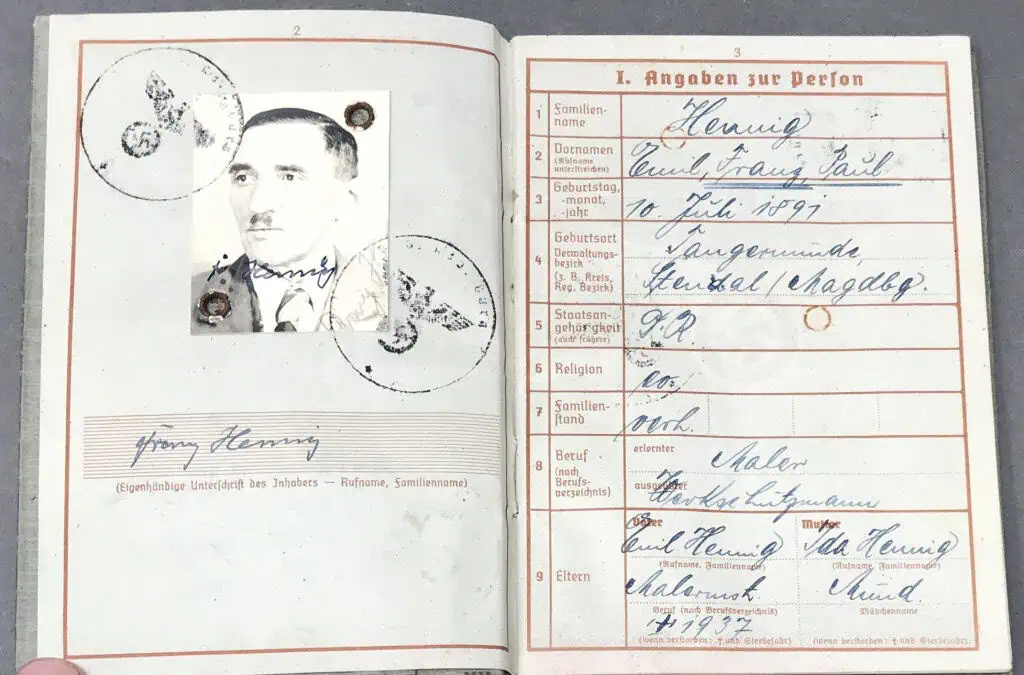 2
Hennig
Franz Hennig
(Eigenhändige Unterschrift des Inhabers — Rufname, Familienname)
3
I. Angaben zur Person
1 Familien-
name
Hennig
2 Vornamen
(Rufname
unterstreichen)
Emil, Franz, Paul
3 Geburtstag,
-monat,
-jahr
10. Juli 1891
4 Geburtsort
Verwaltungs-
bezirk
(z. B. Kreis,
Reg. Bezirk)
Tangermünde,
Stendal / Magdbg.
5 Staatsan-
gehörigkeit
(auch frühere)
D.R.
6 Religion
ev.
7 Familien-
stand
verh.
8 Beruf
(nach
Berufs-
verzeichnis)
erlernter
Maler
ausgeübter
Werkschutzmann
9 Eltern
Vater
Mutter
Emil Hennig
Ida Hennig
(Rufname, Familienname)
(Rufname, Familienname)
Malermst.
Mund.
Beruf (nach Berufsverzeichnis)
Mädchenname
† 1937
(wenn verstorben: † und Sterbejahr)
(wenn verstorben: † und Sterbejahr)